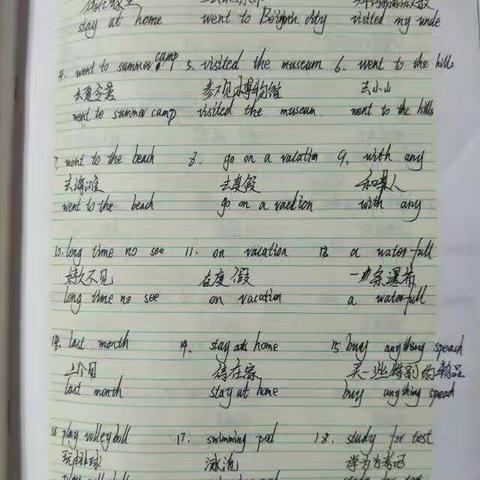 stay at home went to Beijin city visited my uncle
4. went to summer camp 5. visited the museum 6. went to the hills
去夏令营 参观博物馆 去小山
went to summer camp visited the museum went to the hills
7. went to the beach 8. go on a vacation 9. with any
去海滩 去度假 和某人
went to the beach go on a vacation with any
10. long time no see 11. on vacation 12 a waterfull
好久不见 在度假 一条瀑布
long time no see on vacation a waterfull
13. last month 14. stay at home 15 buy anything spead
上个月 待在家 买一些特别的物品
last month stay at home buy anything spead
16 play volleyball 17. swimming pool 18. study for test
玩排球 泳池 学习为考试